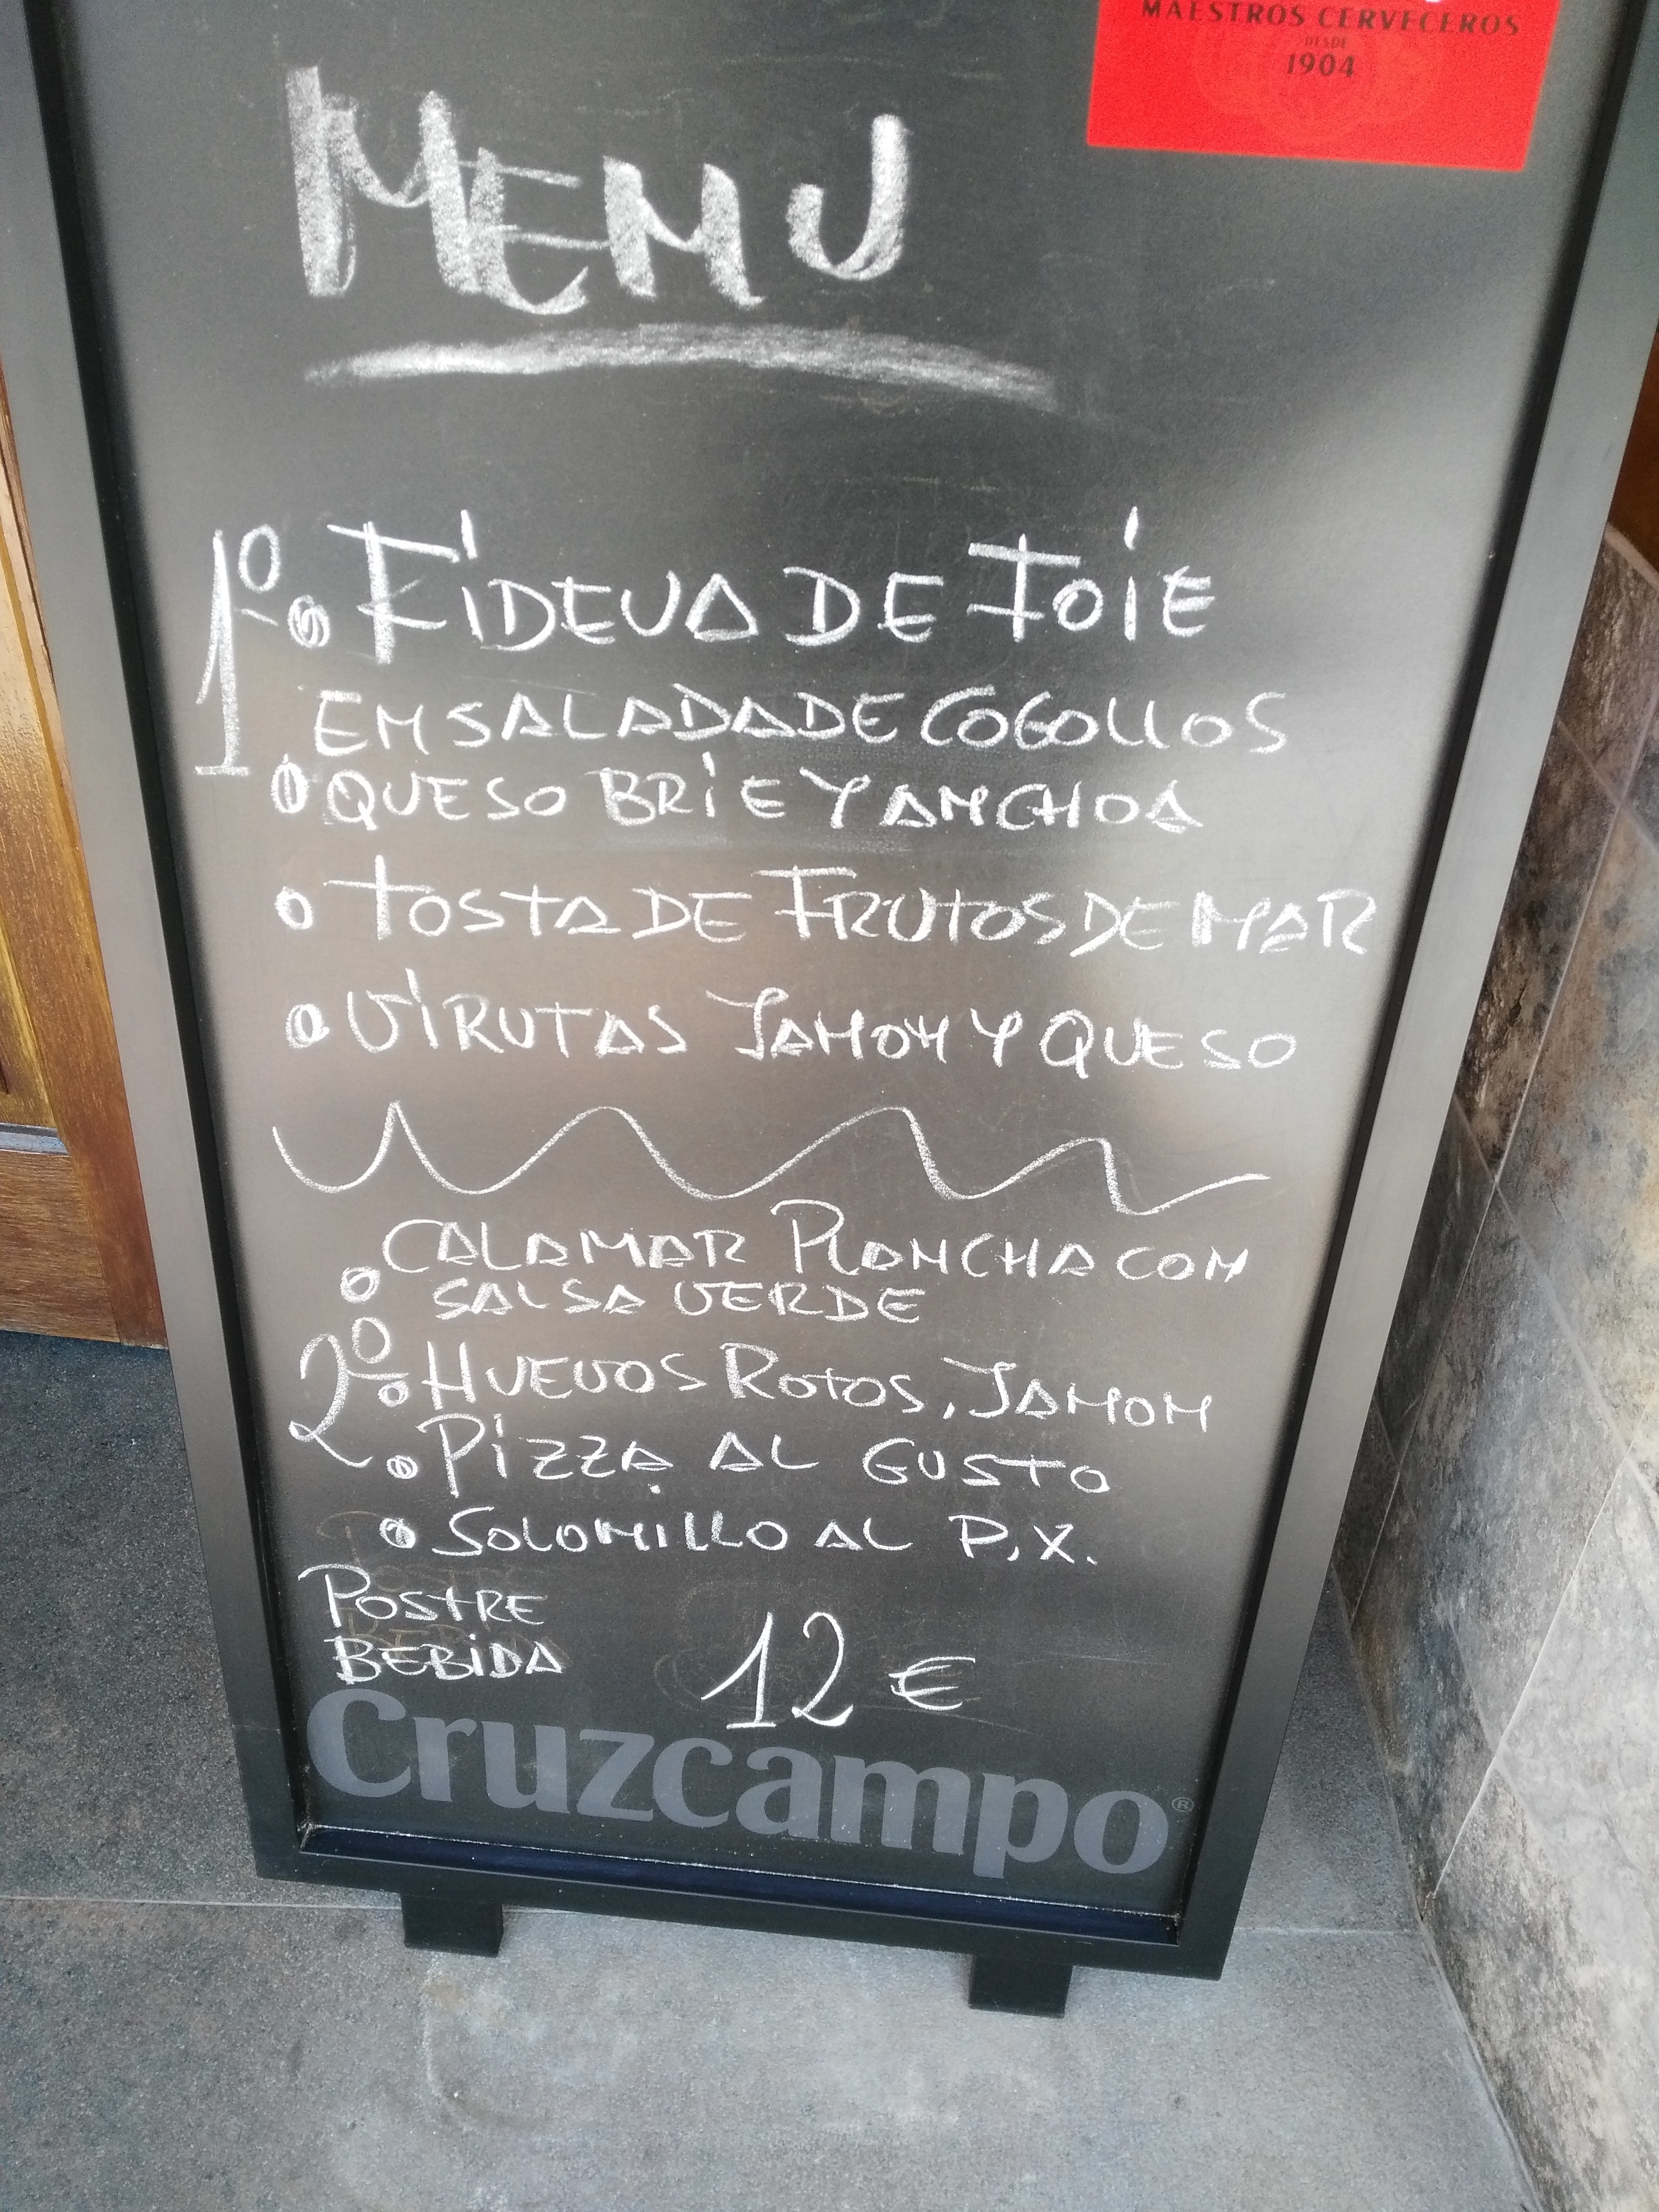 MAESTROS CERVECEROS
DESDE
1904
MENU
1º FIDEUA DE FOIE
ENSALADA DE COGOLLOS
QUESO BRIE Y ANCHOA
TOSTA DE FRUTOS DE MAR
VIRUTAS JAMON Y QUESO
CALAMAR PLANCHA CON
SALSA VERDE
2º HUEVOS ROTOS, JAMON
PIZZA AL GUSTO
SOLOMILLO AL P.X.
POSTRE
BEBIDA 12 €
Cruzcampo®